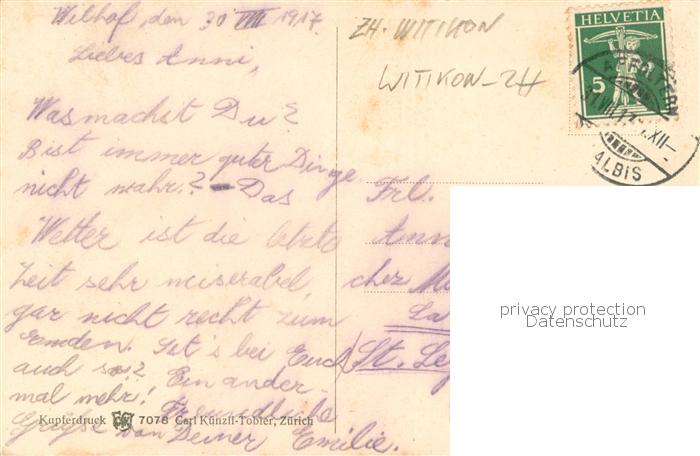 den 30 VII 1917.
Liebes Anni,
Was machst Du?
Bist immer guter Dinge
nicht wahr? – Das
Wetter ist die letzte
Zeit sehr miserabel,
gar nicht recht zum
Emden. Ist's bei Euch
auch so? Ein ander-
mal mehr!
Freundliche
Grüsse von Deiner Emilie.
Kupferdruck 7078 Carl Künzli-Tobler, Zürich
ZH. WITIKON
WITIKON-ZH
HELVETIA
5
ALBIS
Frl.
chez
St.
privacy protection
Datenschutz